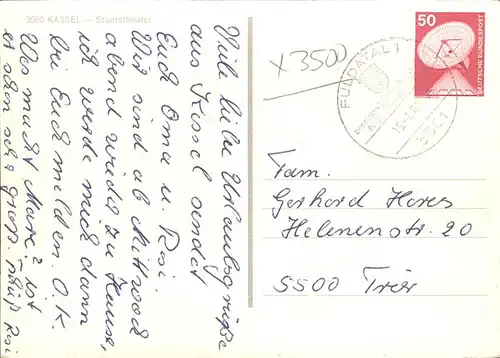 3500 KASSEL — Staatstheater
Viele liebe Urlaubsgrüße
aus Kassel sendet
Euch Oma u. Rosi.
Wir sind ab Mittwoch
abend wieder zu Hause,
ich werde mich dann
bei Euch melden. O.K.
Was macht Marc? ist
er schon sehr groß. Rosi
x 3500
FULDATAL 1
3501
50
DEUTSCHE BUNDESPOST
Fam.
Gerhard Heres
Helenenstr. 20
5500 Trier